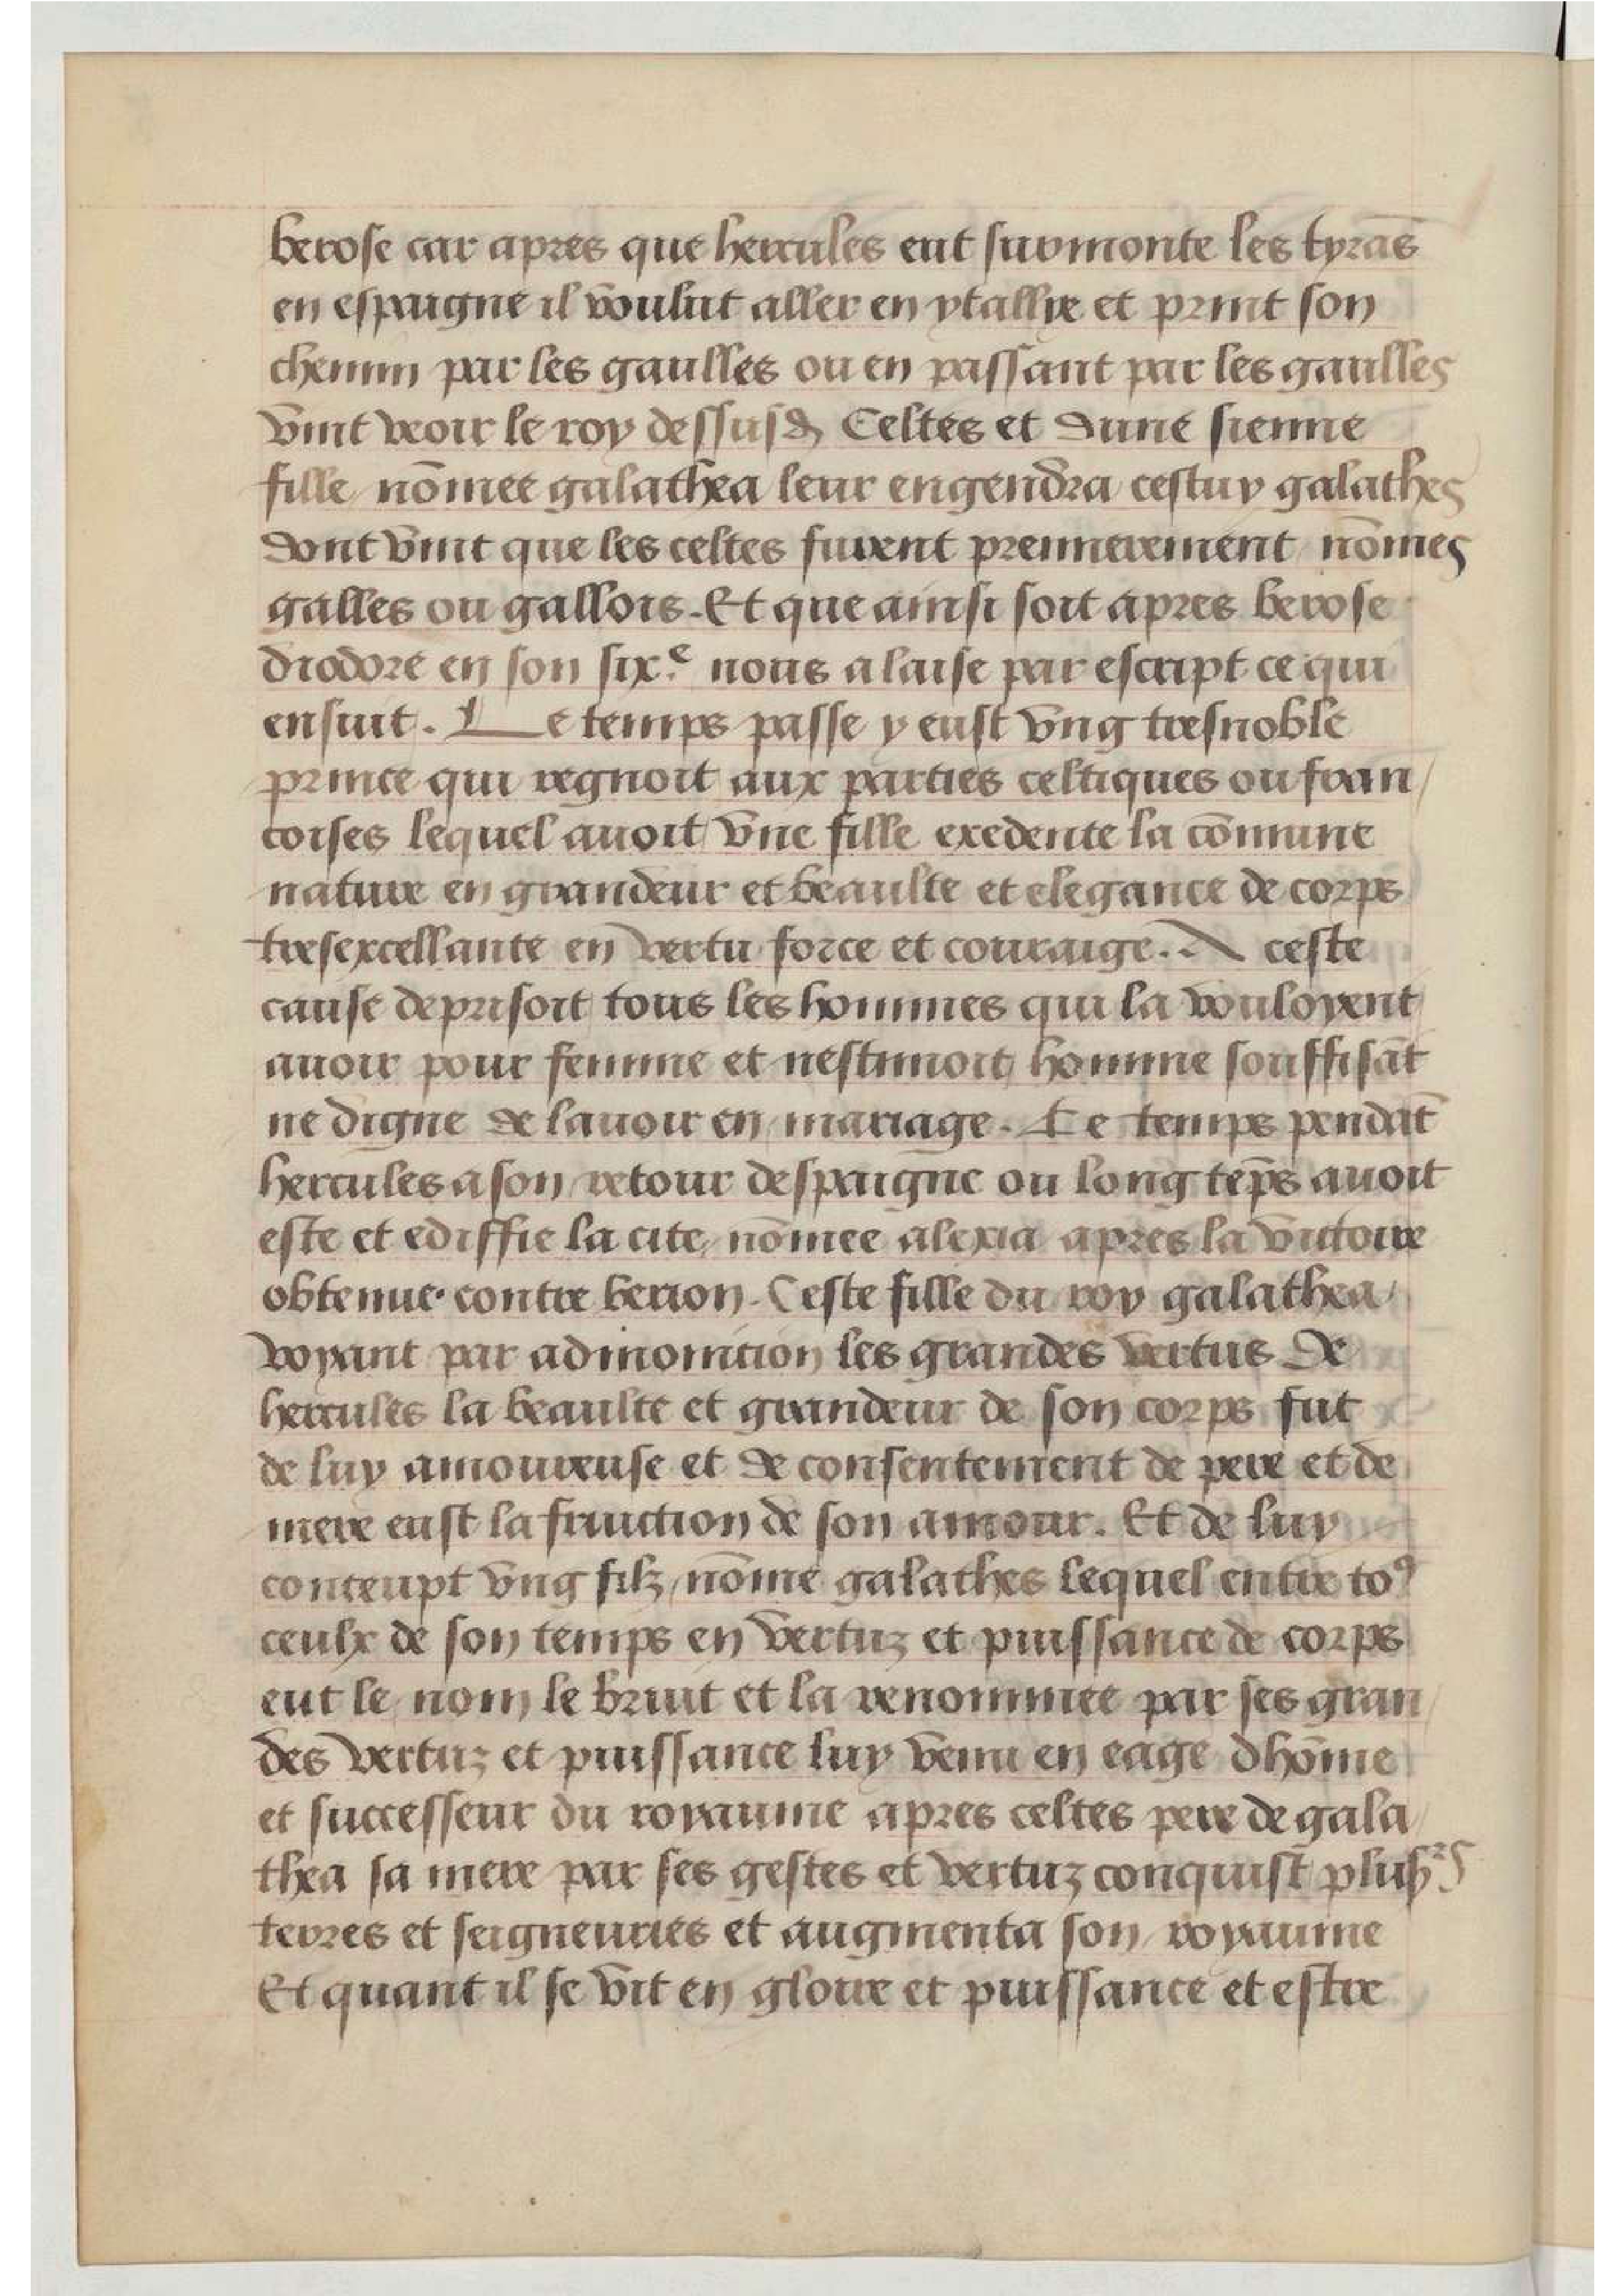 berose car apres que hercules eut surmonte les tyrās
en espaigne il voulut aller en ytallye et print son
chemin par les gaulles ou en passant par les gaulles
vint veoir le roy dessusd Celtes et dune sienne
fille nōmee galathea leur engendra cestuy galathes
dont vint que les celtes furent premierement nōmes
galles ou gallois. Et que ainsi soit apres berose
diodore en son six.e nous a laise par escript ce qui
ensuit. Le temps passe y eust vng tresnoble
prince qui regnoit aux parties celtiques ou fran/
coises lequel auoit vne fille exedente la cōmune
nature en grandeur et beaulte et elegance de corps
tresexcellante en vertu force et couraige. A ceste
cause deprisoit tous les hommes qui la vouloyent
auoir pour femme et nestimoit homme souffisāt
ne digne de lauoir en mariage. Ce temps pendāt
hercules a son retour despaigne ou long tēps auoit
este et ediffie la cite nōmee alexia apres la victoire
obtenue contre berion. Ceste fille du roy galathea
voyant par admonicion les grandes vertus de
hercules la beaulte et grandeur de son corps fut
de luy amoureuse et de consentement de pere et de
mere eust la fruiction de son amour. Et de luy
conceupt vng filz nōme galathes lequel entre to9
ceulx de son temps en vertuz et puissance de corps
eut le nom le bruit et la renommee par ses gran/
des vertuz et puissance luy venu en eage dhōme
et successeur du royaume apres celtes pere de gala/
thea sa mere par ses gestes et vertuz conquist plusrs
terres et seigneuries et augmenta son royaume
Et quant il se vit en gloire et puissance et estre